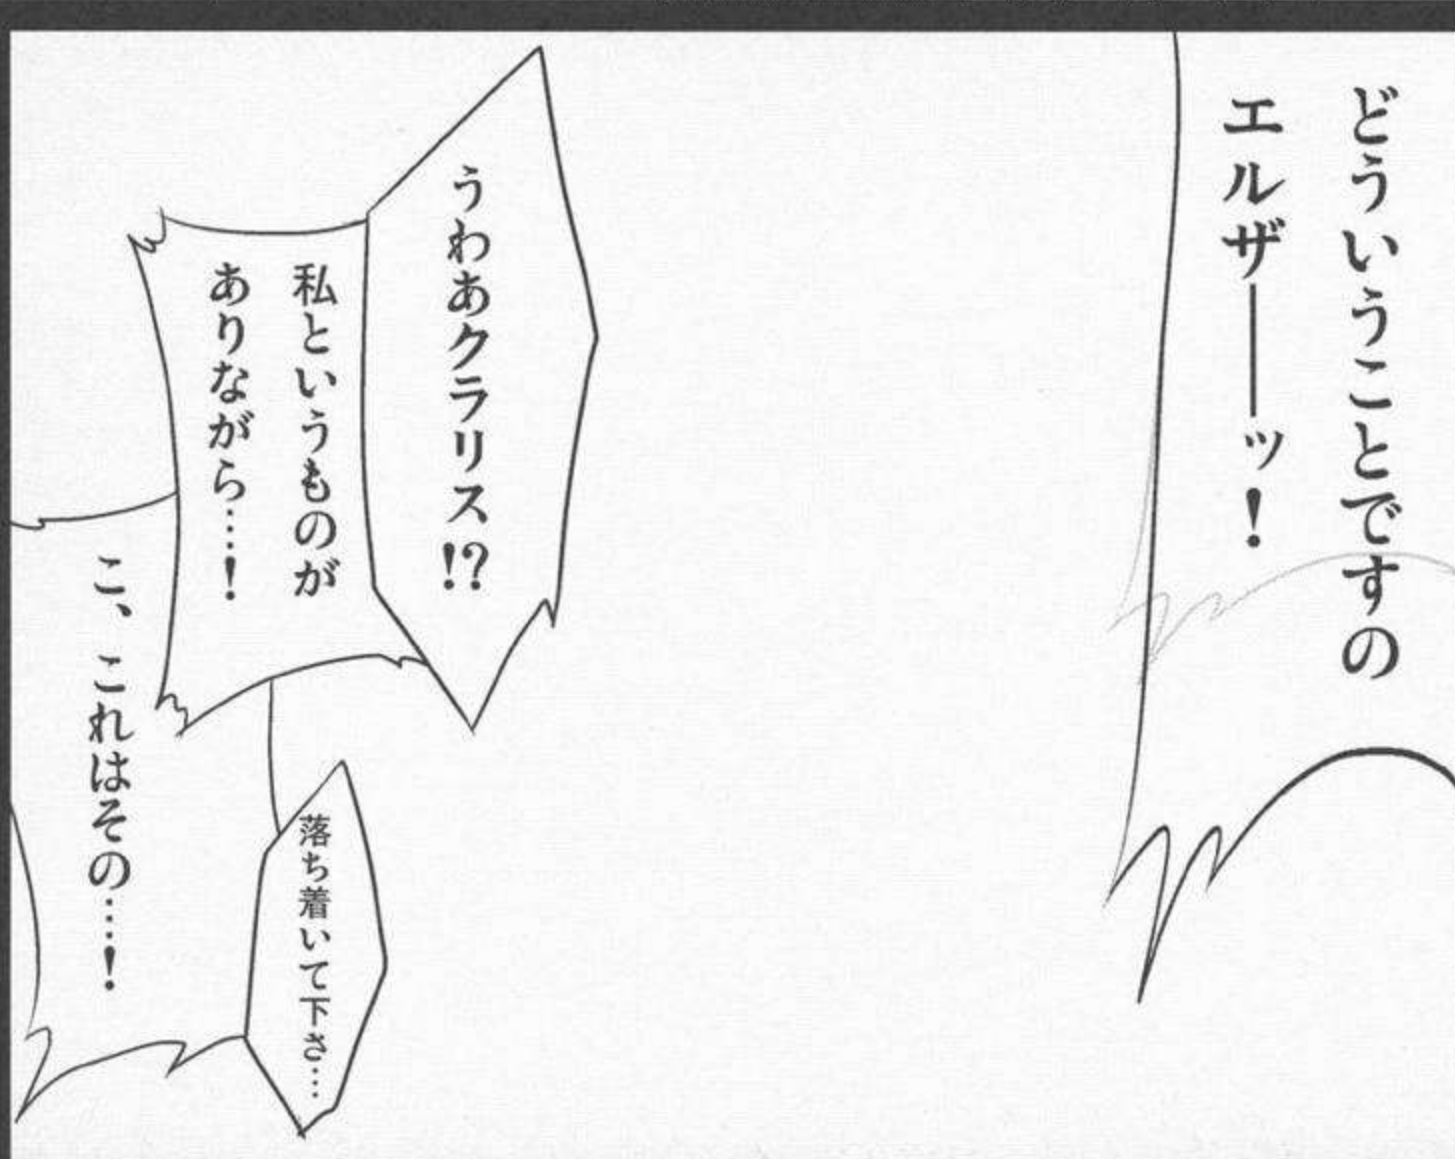 どういうことですの
エルザ――ッ!
うわあクラリス!?
私というものが
ありながら……!
落ち着いて下さ……
こ、これはその……!